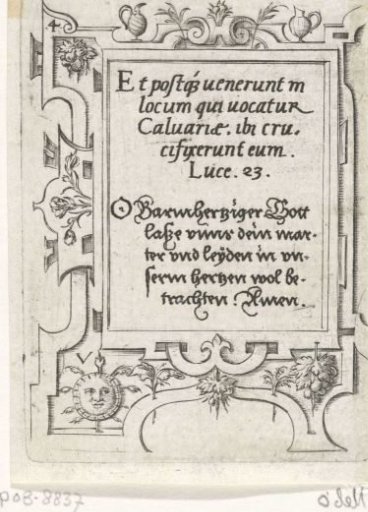 4
Et postq̃ȝ uenerunt in
locum qui uocatur
Caluariæ. ibi cru.
cifixerunt eum.
Luce. 23.
O Barmhertziger Gott
laße vnns dein mar-
ter vnd leyden in vn-
serm hertzen wol be-
trachten. Amen.
V
POB-8837